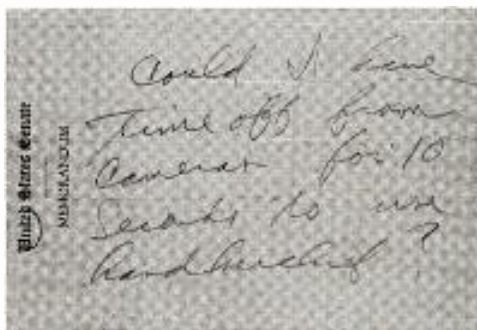 United States Senate
MEMORANDUM
Could I have
time off from
cameras for 10
seconds to use
handkerchief?